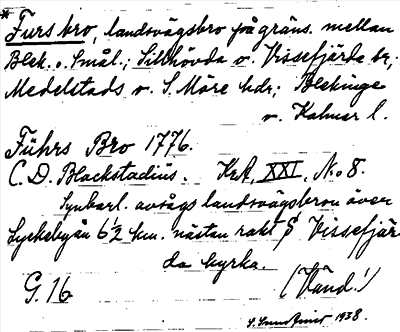 * Furs bro, landsvägsbro på gräns. mellan
Blek. o. Smål.; Sillhövda o. Vissefjärda sr;
Medelstads o. S. Möre hdr; Blekinge
o. Kalmar l.
Führs Bro 1776.
C. D. Blackstadius. Krk, XXI, No 8.
Synbarl. avsågs landsvägsbron över
Lyckebyån 6½ km. nästan rakt S Vissefjär-
da kyrka.
G. 16 (Vänd!)
1938.